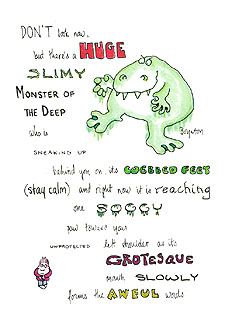 DON'T look now,
but there's a HUGE
SLIMY
MONSTER OF
THE DEEP
who is
Boynton
SNEAKING UP
behind you on its
(stay calm) and right now it is reaching
one SOGGY
paw toward your
UNPROTECTED left shoulder as its
GROTESQUE
mouth SLOWLY
forms the AWFUL words